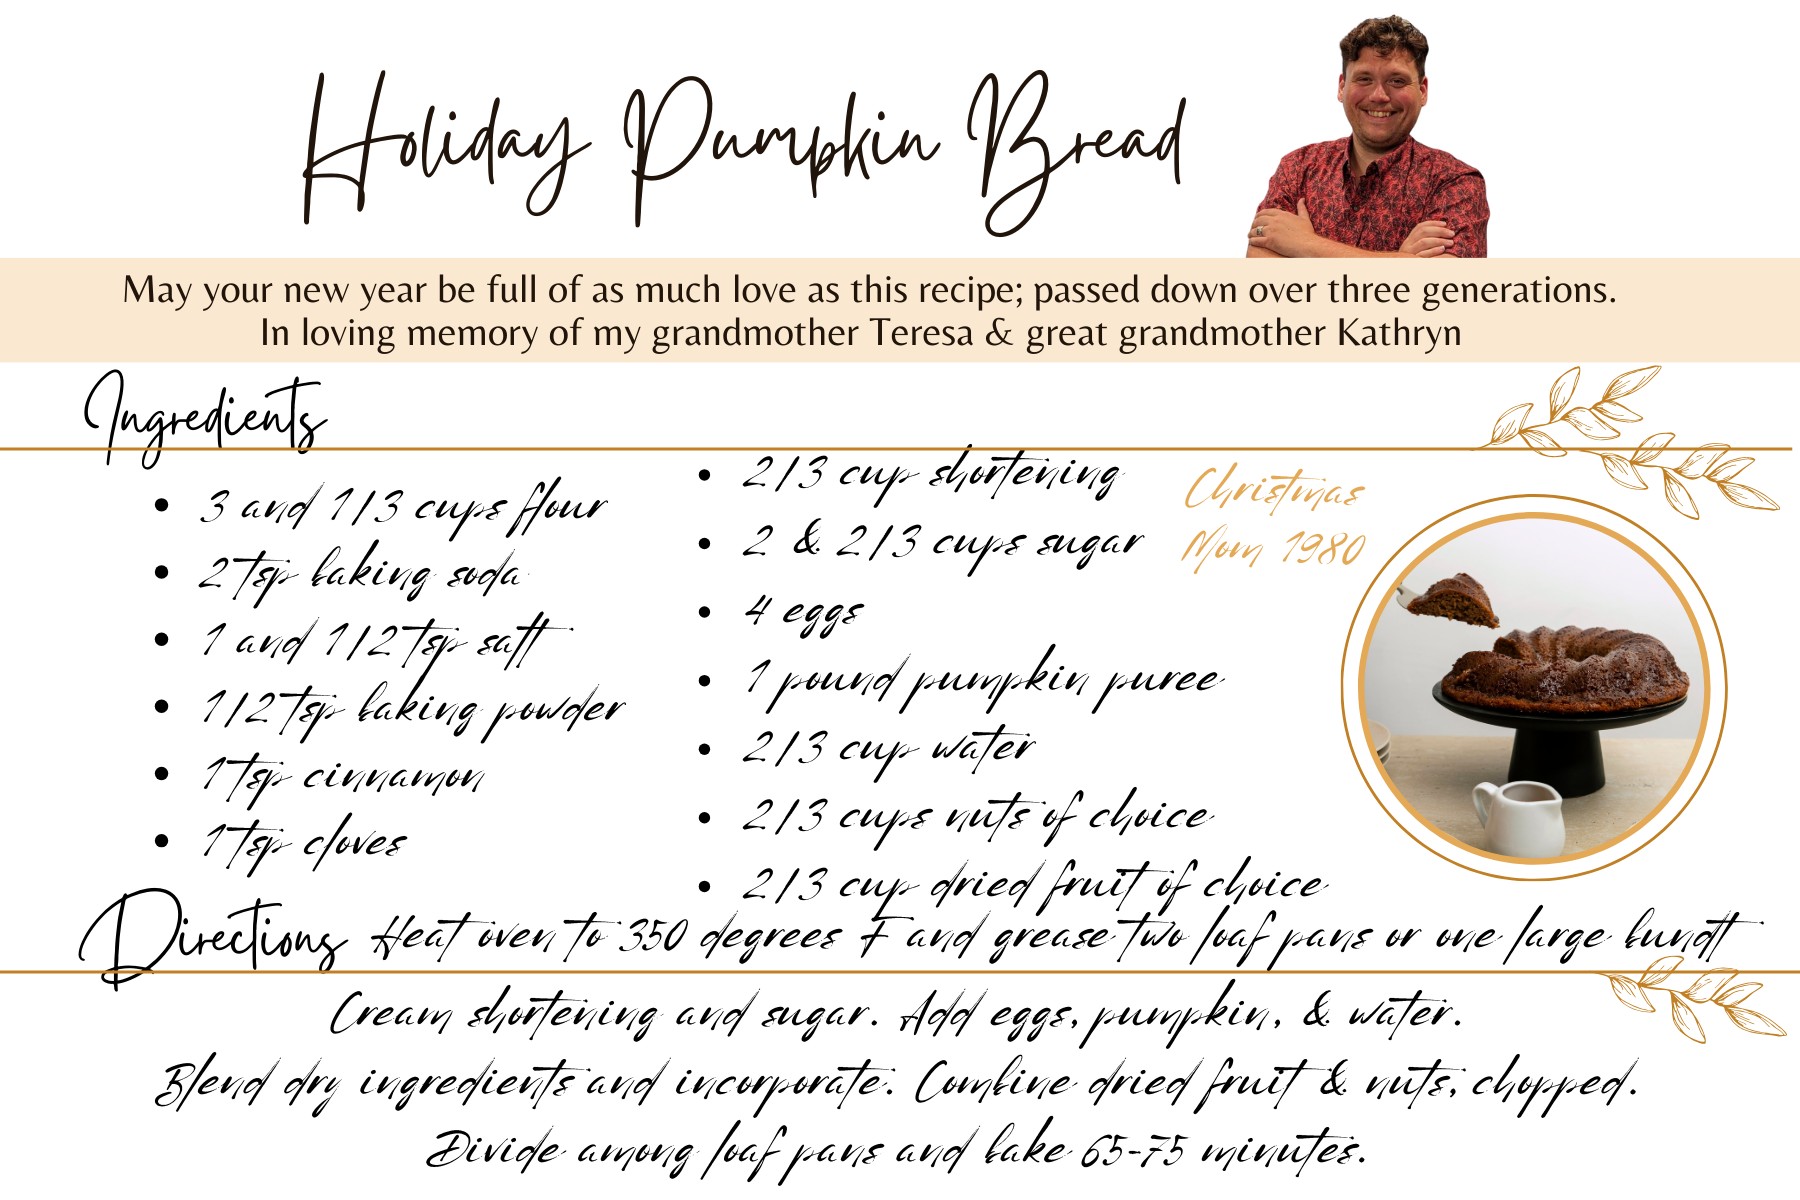 Holiday Pumpkin Bread
May your new year be full of as much love as this recipe; passed down over three generations.
In loving memory of my grandmother Teresa & great grandmother Kathryn
Ingredients
3 and 1/3 cups flour
2 tsp baking soda
1 and 1/2 tsp salt
1/2 tsp baking powder
1 tsp cinnamon
1 tsp cloves
2/3 cup shortening
2 & 2/3 cups sugar
4 eggs
1 pound pumpkin puree
2/3 cup water
2/3 cups nuts of choice
2/3 cup dried fruit of choice
Christmas
Mom 1980
Directions Heat oven to 350 degrees F and grease two loaf pans or one large bundt
Cream shortening and sugar. Add eggs, pumpkin, & water.
Blend dry ingredients and incorporate. Combine dried fruit & nuts, chopped.
Divide among loaf pans and bake 65-75 minutes.